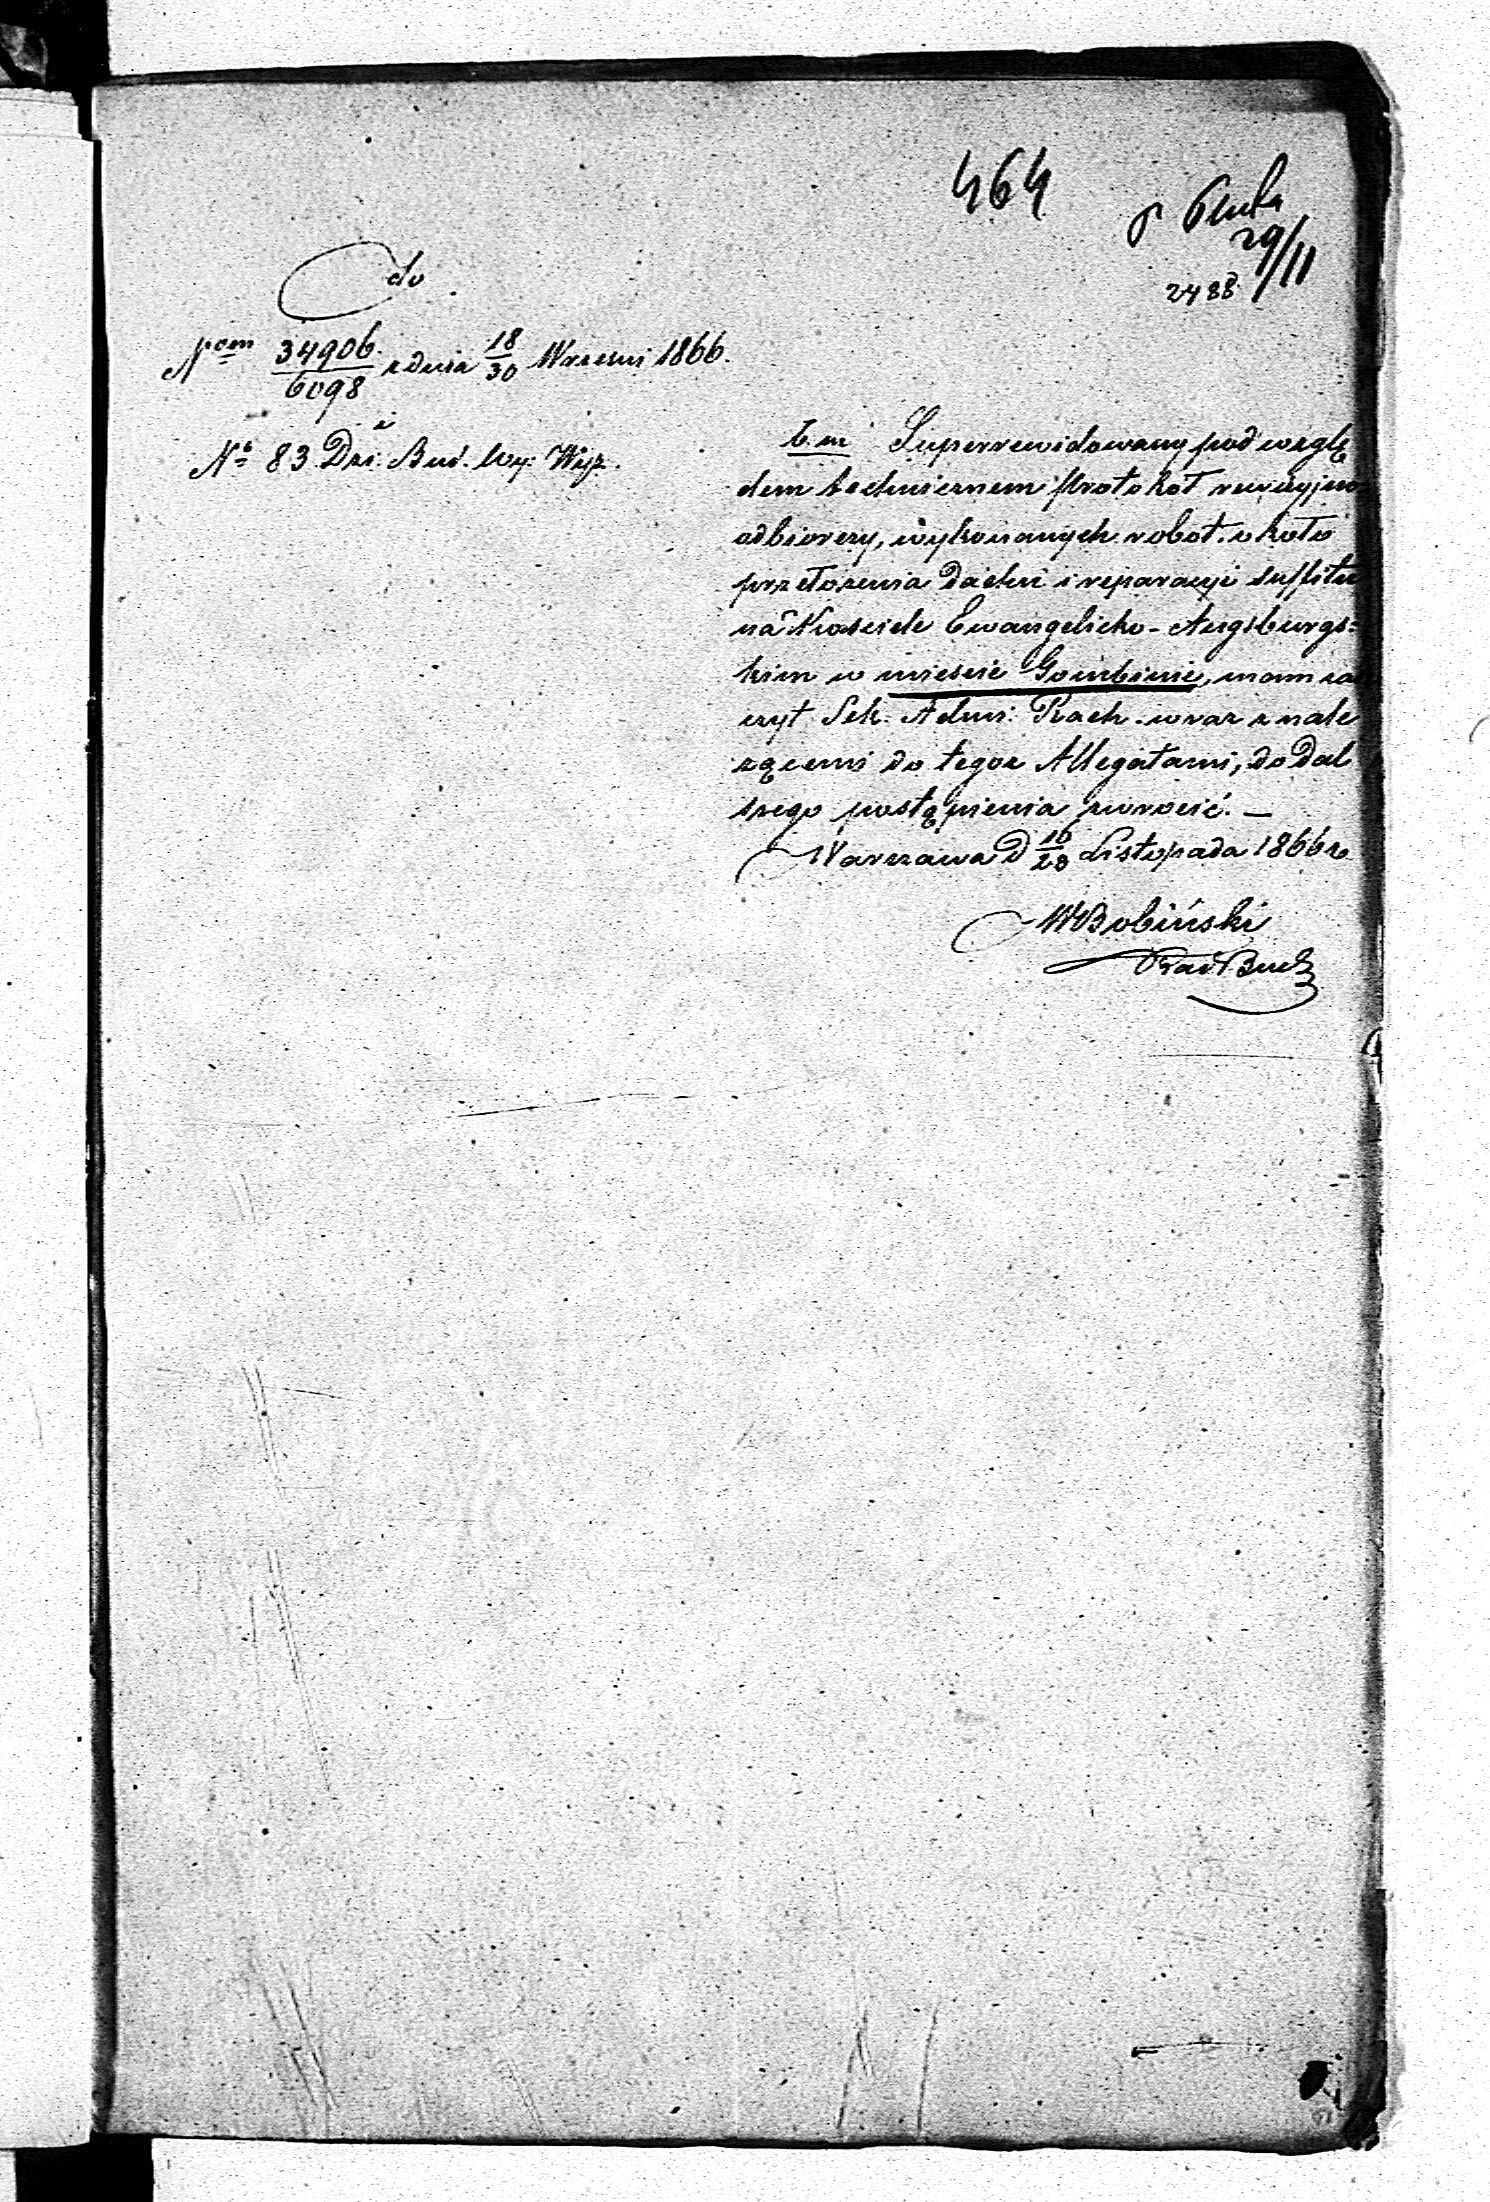 464
29/11
2488
do
Nrom 34906/6098 z dnia 18/30 Wrześni 1866.
i
No 83 Dzi: Bud. Wyz.
Superrewidowany pod wzglę
dem technicznem Protokoł rewizyjno
odbiorczy, wykonanych robot około
przełożenia dachu i reparacyi suffitu
na Kościele Ewangelicko-Augsburgs=
kim w mieście Gombinie, mam za
czyt Sek: Adm: Rach. wraz z nale
żącemi do tegoż Allegatami, do dal
szego postąpienia zwrócić. —
Warszawa D 16/28 Listopada 1866 r.
WBobiński
Bud